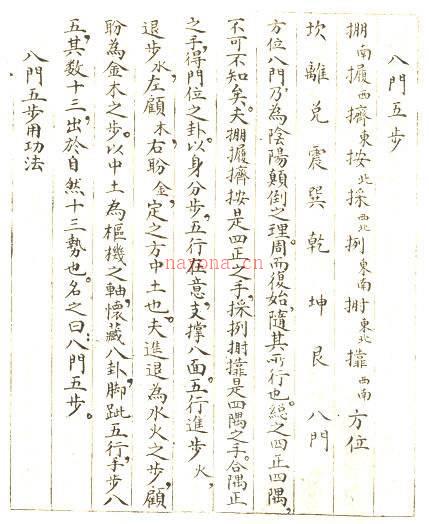 八門五步
掤南履西擠東按北採西北挒東南掤東北靠西南方位
坎離兌震巽乾坤艮八門
方位八門乃為陰陽顛倒之理周而復始隨其所行也總之四正四隅,
不可不知矣。夫掤履擠按是四正之手,採挒掤靠是四隅之手。合隅正
之手,得門位之卦。以身分步,五行在意支撐八面。五行進步火,
退步水左顧木右盼金,定之方中土也。夫進退為水火之步,顧
盼為金木之步。以中土為樞機之軸,懷藏八卦,脚跐五行,手步八
五其数十三,出於自然十三勢也。名之曰:八門五步。
八門五步用功法
nayona.cn